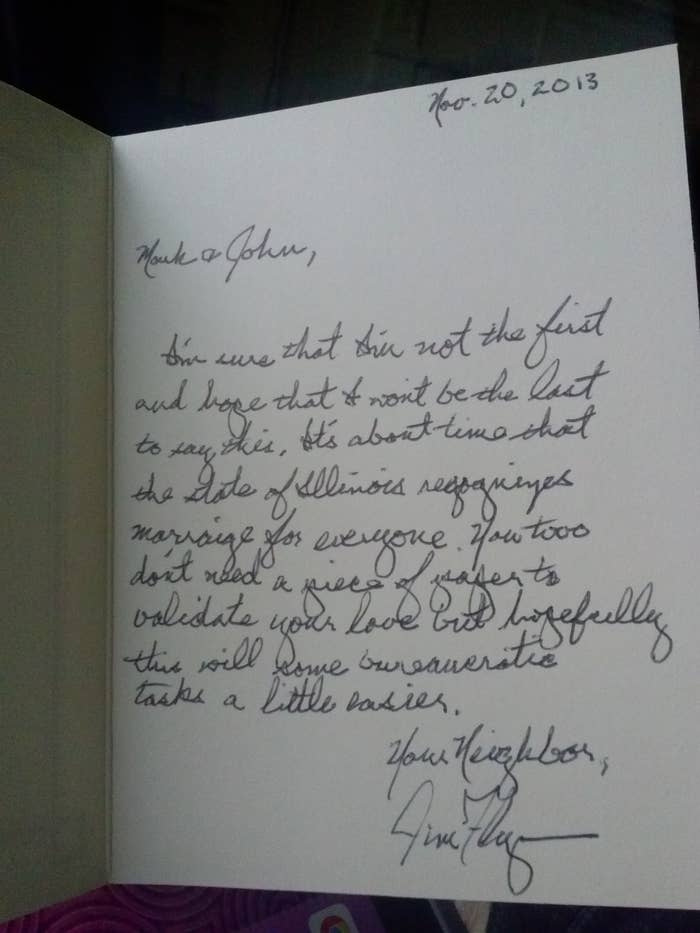 Nov. 20, 2013
Mark & John,
I'm sure that I'm not the first
and hope that I won't be the last
to say this. It's about time that
the state of Illinois recognizes
marraige for everyone. You two
don't need a piece of paper to
validate your love but hopefully
this will some bureaucratic
tasks a little easier.
Your Neighbor,
Jim